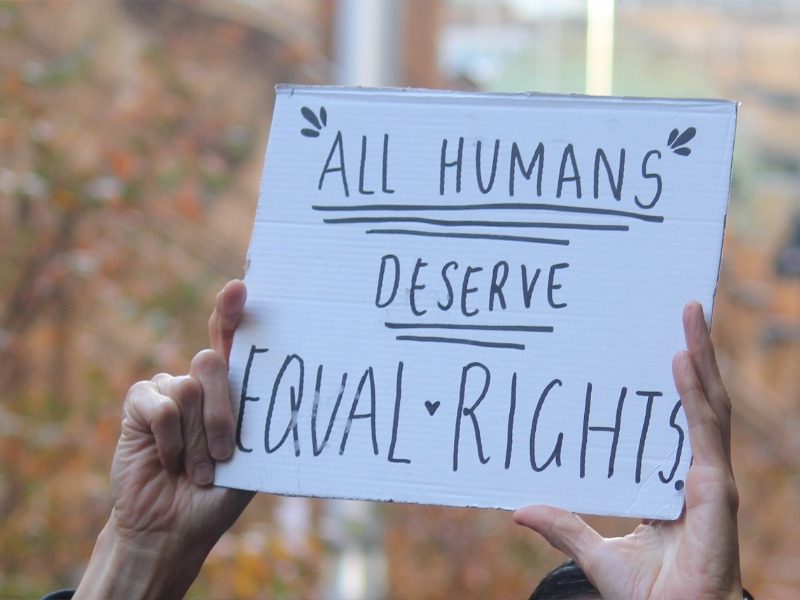 ALL HUMANS
DESERVE
EQUAL RIGHTS.